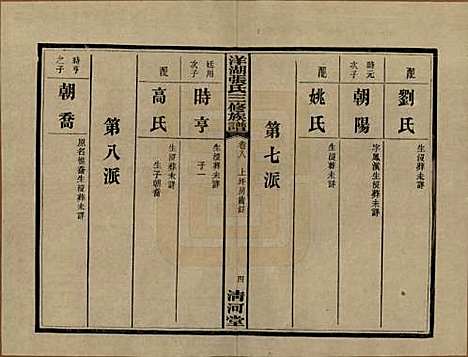 配
劉氏
生沒葬未詳
時元
次子
朝陽
字鳳漢生沒葬未詳
配
姚氏
生沒葬未詳
第七派
洋湖張氏三修族譜
卷八
上圫房齒錄
四
清河堂
廷用
次子
時亨
生沒葬未詳
子一
配
高氏
生沒葬未詳
生子朝喬
第八派
時亨
之子
朝喬
生沒葬未詳